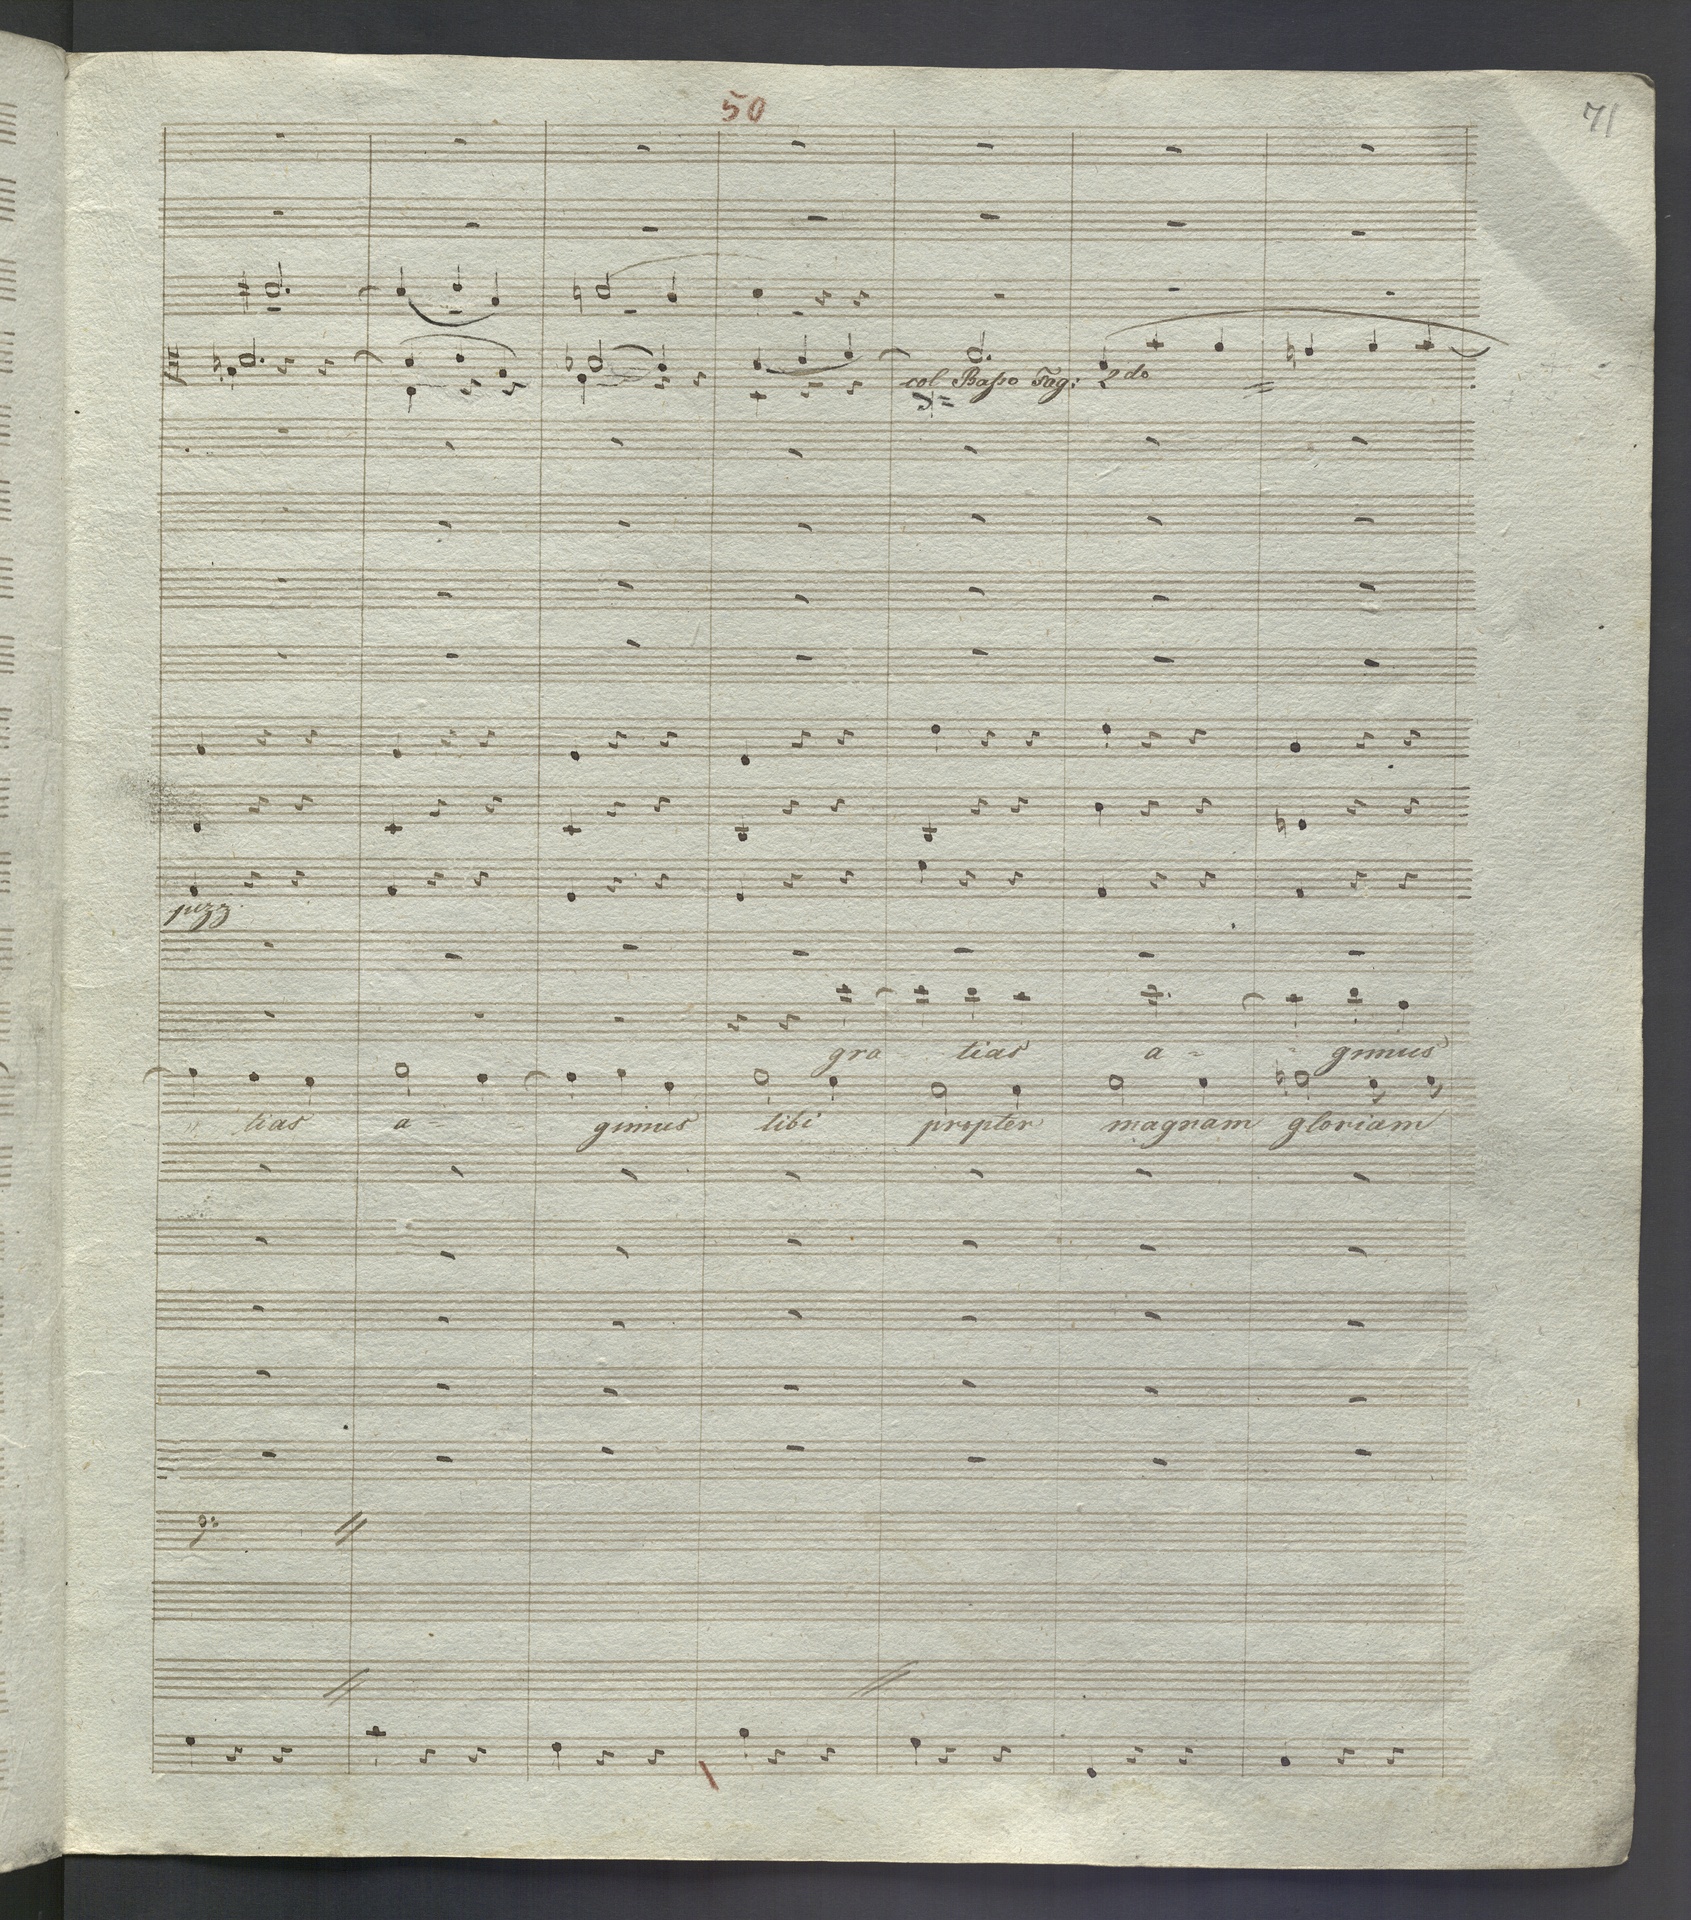 50
71
col Basso Fag: 2do
pizz
gra tias a - gimus
tias a - gimus tibi propter magnam gloriam